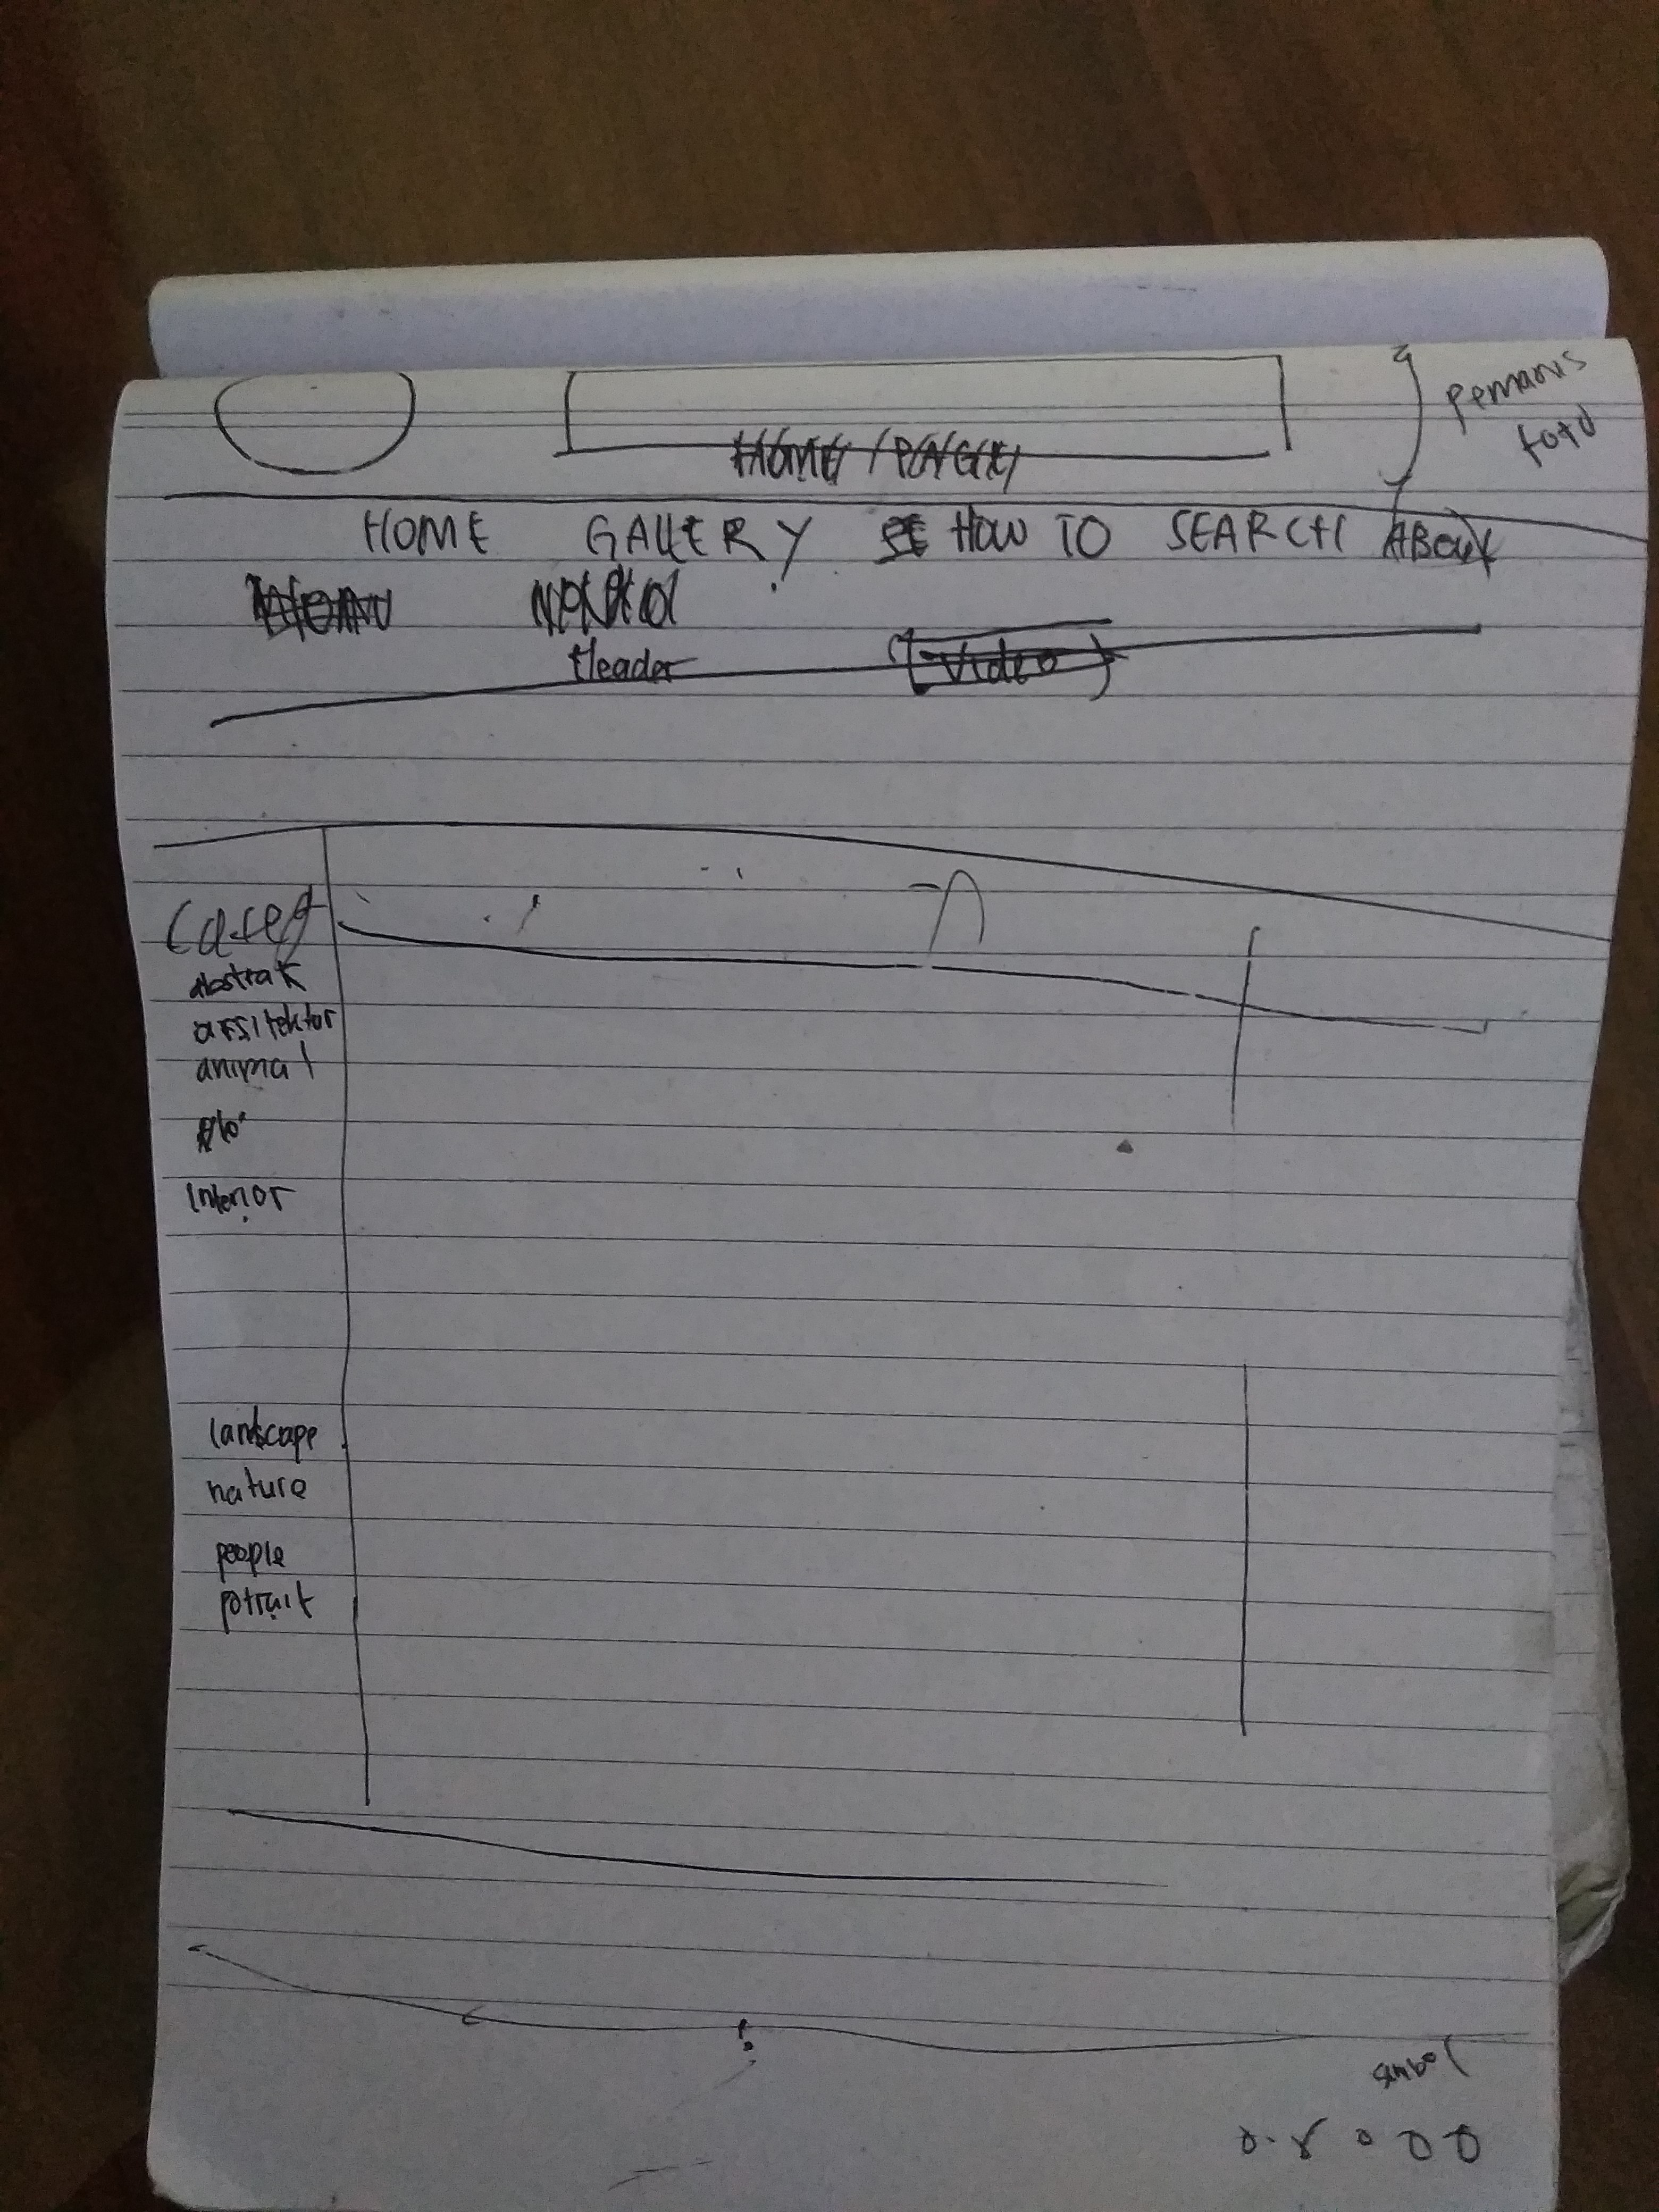 Pemanis
foto
HOME GALLERY HOW TO SEARCH ABout
Header
Video
Categ
abstrak
arsitektor
animal
Interior
landscape
nature
people
potrait
simbol